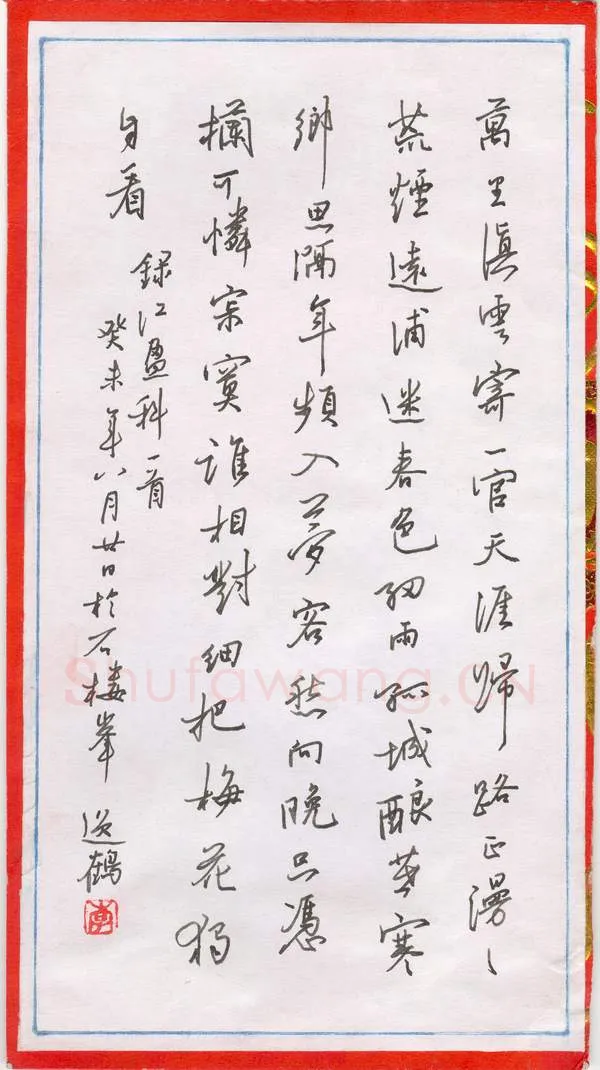 萬里滇雲寄一官天涯歸路正漫〻
荒煙遠浦迷春色細雨孤城釀暮寒
鄉思隔年頻入夢客愁向晚只憑
欄可憐寂寞誰相對細把梅花獨
自看
錄江盈科一首
癸未年八月廿日於石樓峯
鶴
Shufawang.CN